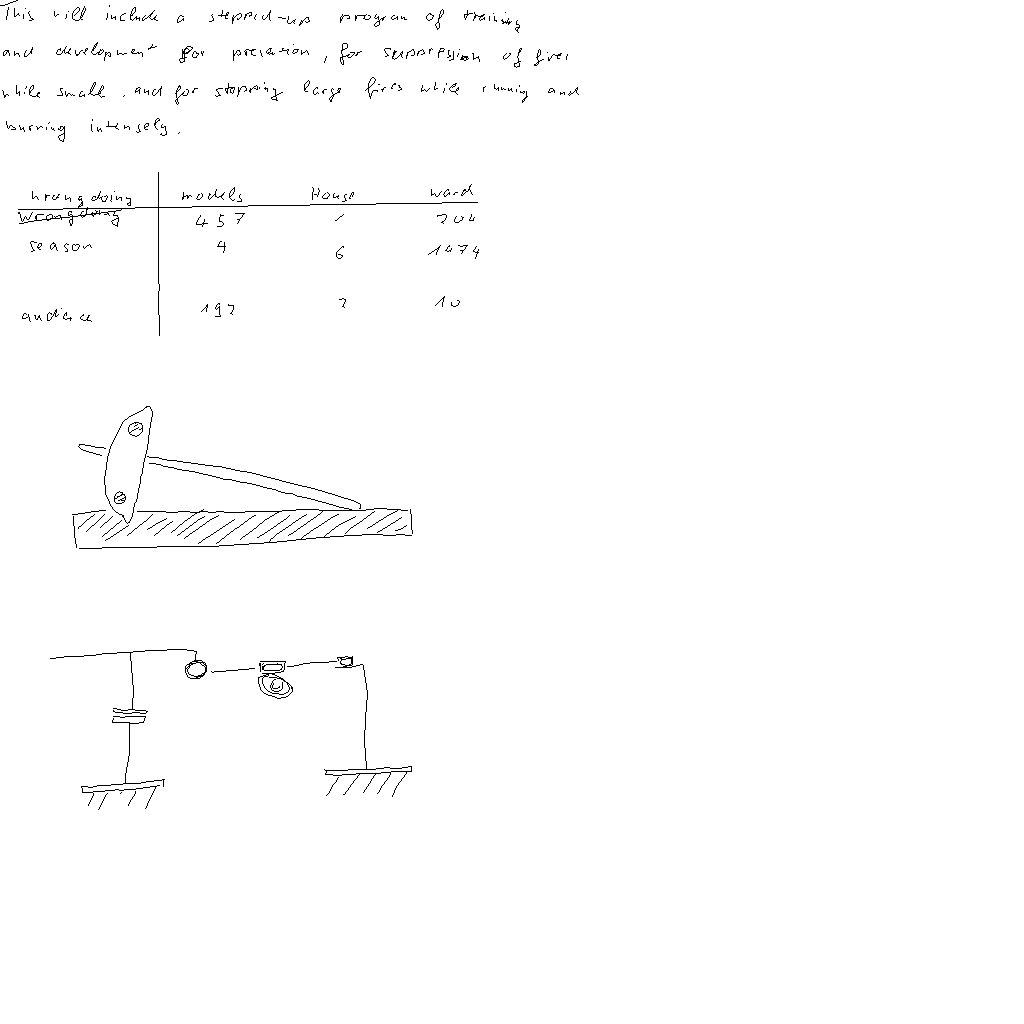 This will include a stepped-up program of training
and development for prevention, for suppression of fires
while small, and for stopping large fires while running and
burning intensely.
wrongdoing models House ward
wrongdoing 457 1 204
season 4 6 1474
audience 192 2 10